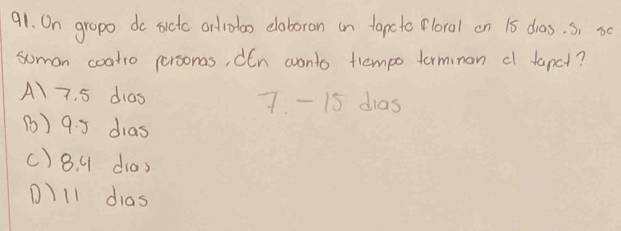 91. Un grupo de siete artistas elaboran un tapete floral en 15 dias. Si se
suman cuatro personas, ¿En cuanto tiempo terminan el tapet?
A) 7.5 dias
7. - 15 dias
B) 9.5 dias
C) 8.4 dias
D) 11 dias